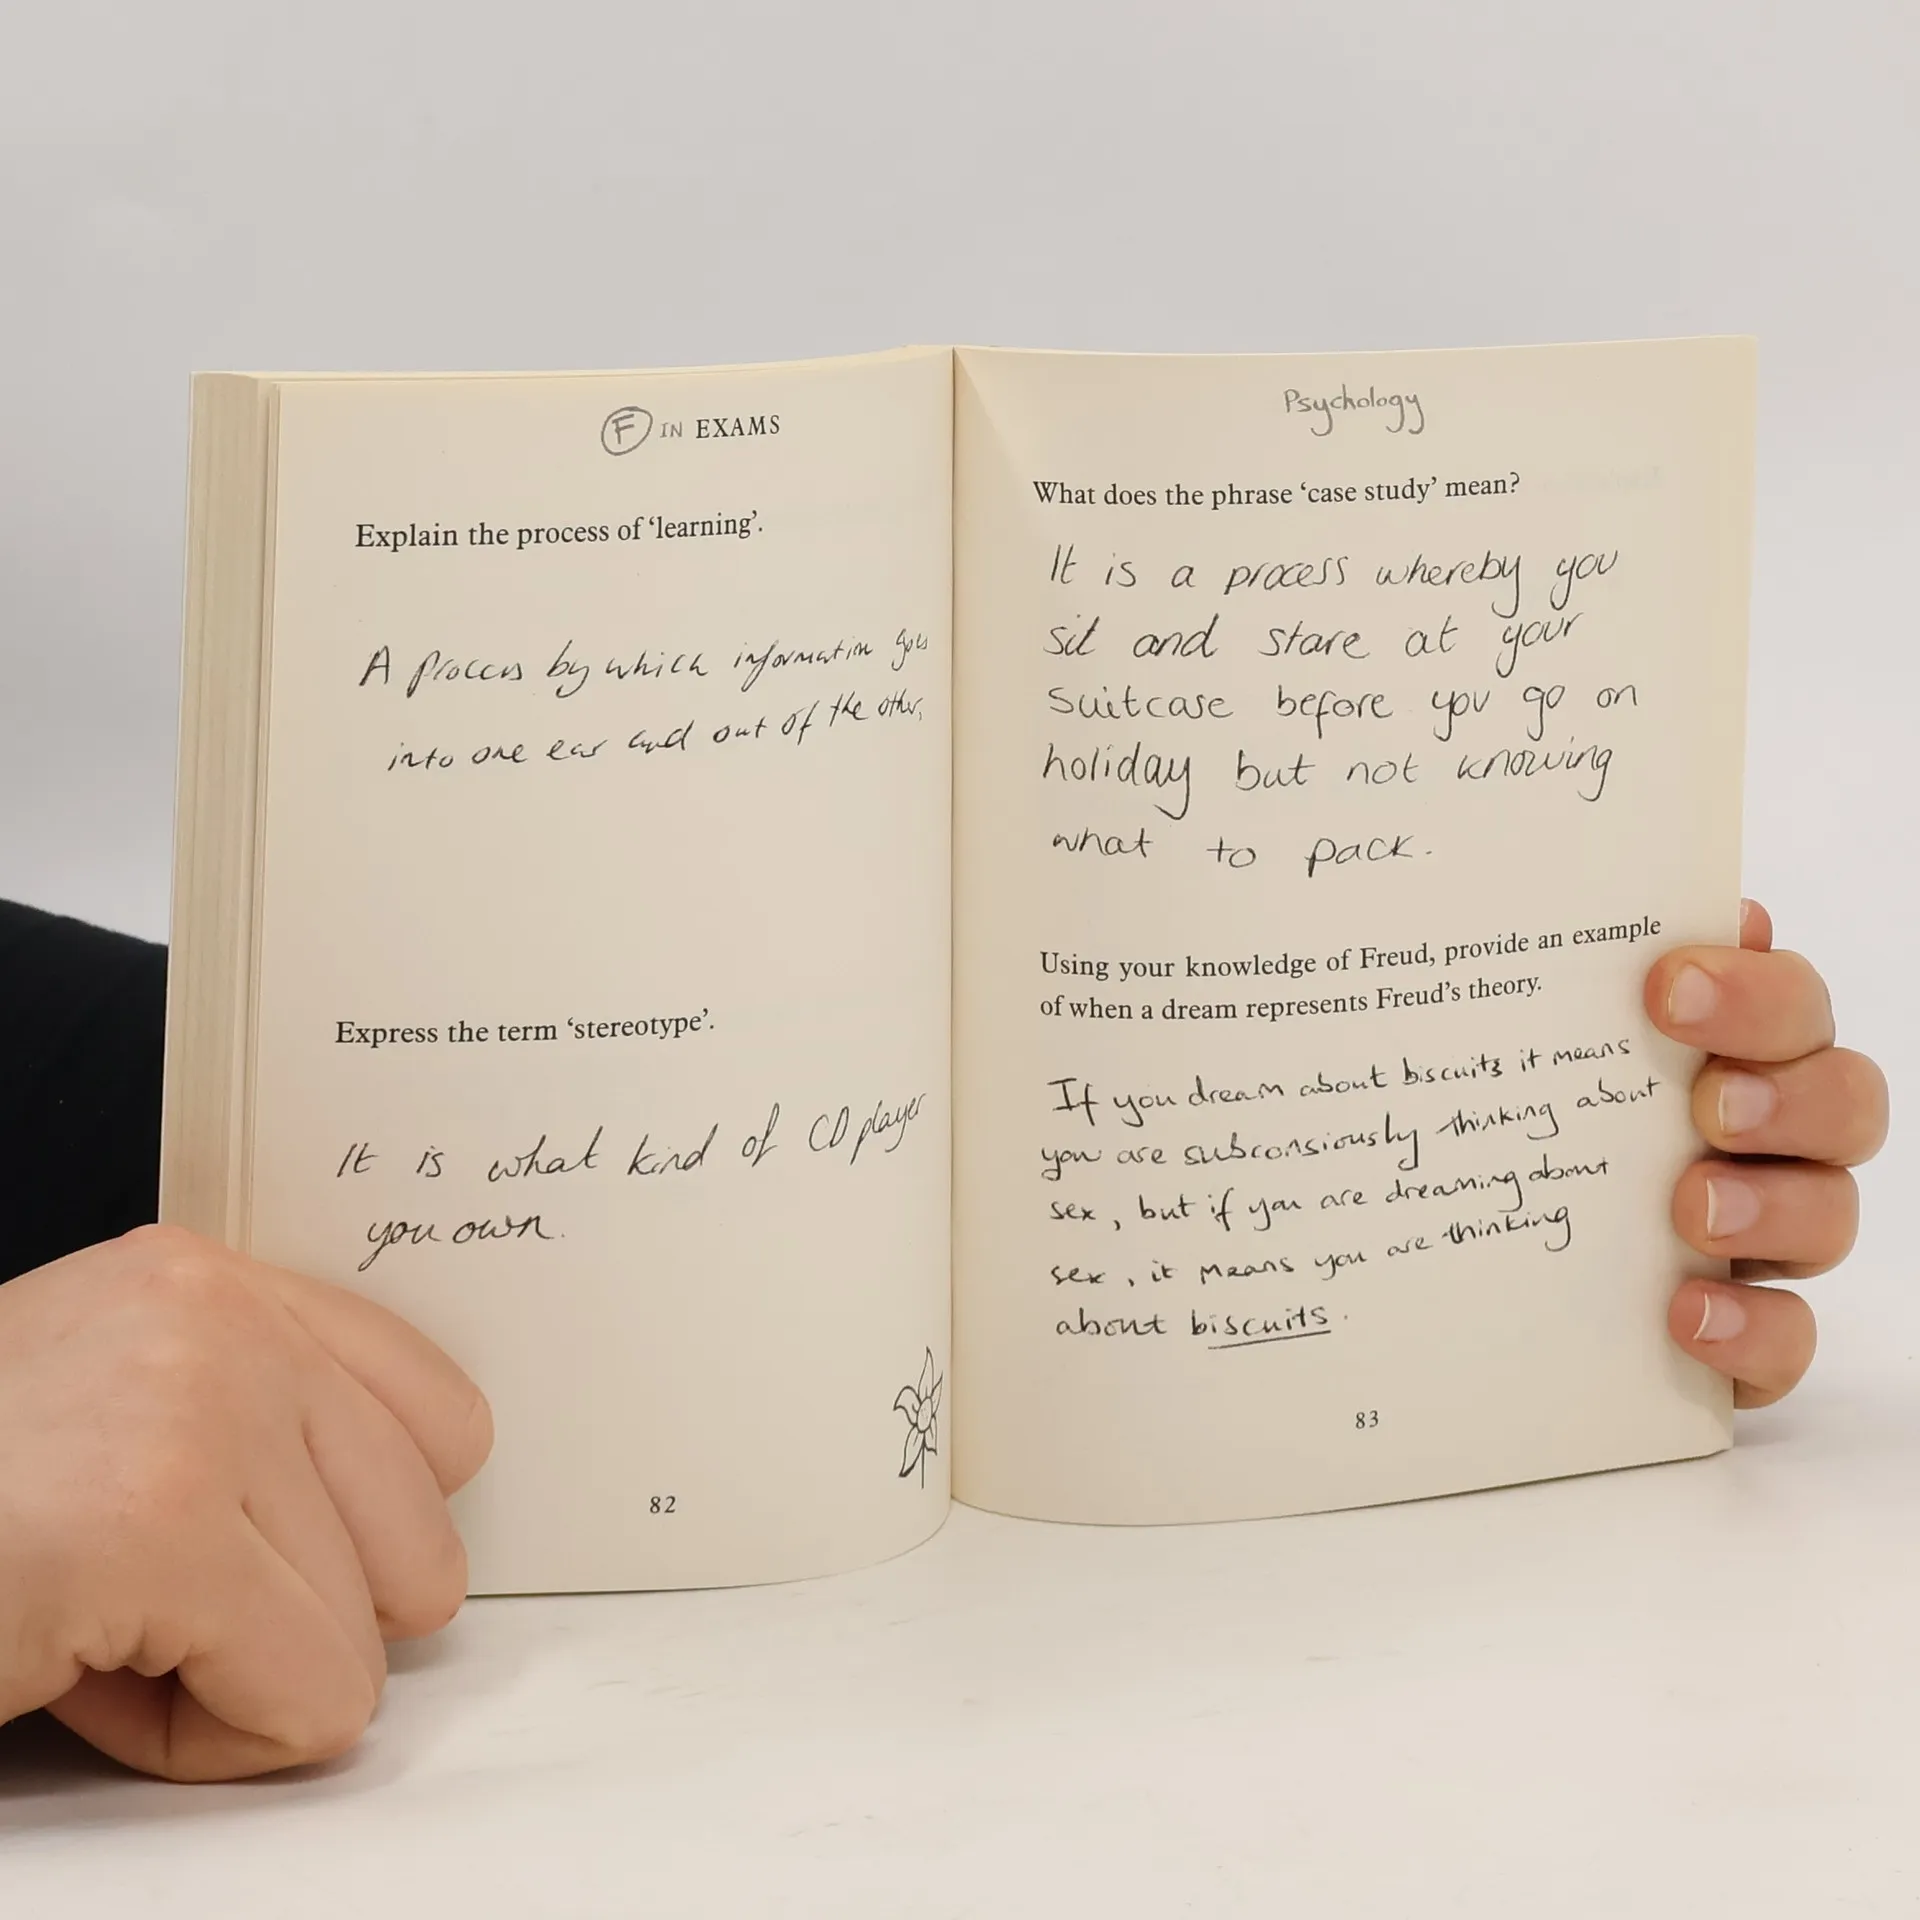 F IN EXAMS
Explain the process of ‘learning’.
A process by which information goes
into one ear and out of the other.
Express the term ‘stereotype’.
It is what kind of CD player
you own.
82
Psychology
What does the phrase ‘case study’ mean?
It is a process whereby you
sit and stare at your
suitcase before you go on
holiday but not knowing
what to pack.
Using your knowledge of Freud, provide an example
of when a dream represents Freud’s theory.
If you dream about biscuits it means
you are subconsiously thinking about
sex, but if you are dreaming about
sex, it means you are thinking
about biscuits.
83